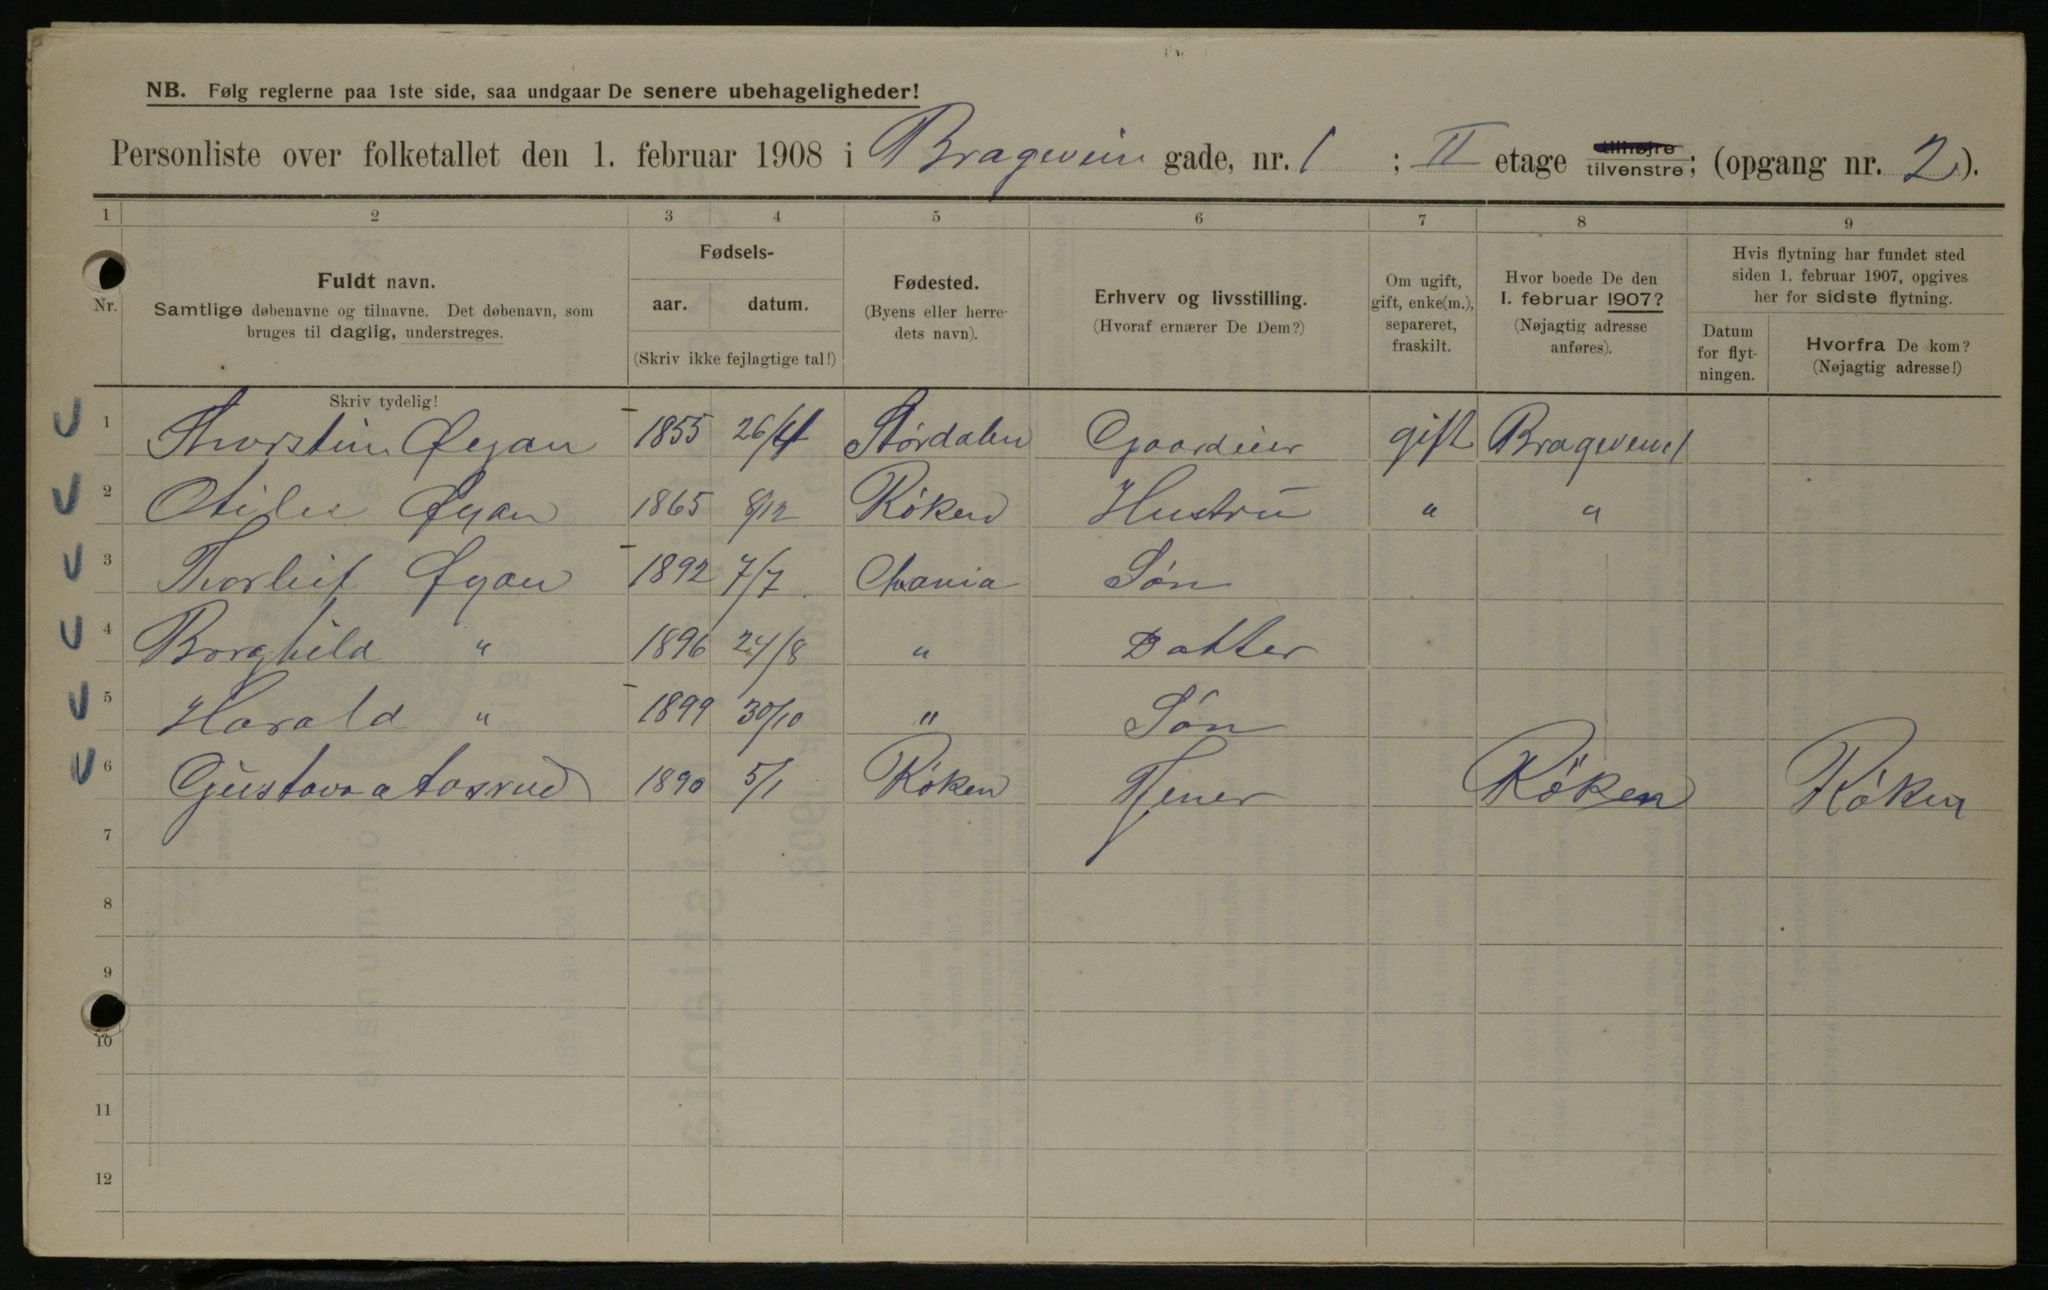 NB. Følg reglerne paa 1ste side, saa undgaar De senere ubehageligheder!
Personliste over folketallet den 1. februar 1908 i Brageveien gade, nr. 1 ; II etage tilhøjre tilvenstre; (opgang nr. 2).
1 2 3 4 5 6 7 8 9
Nr.
Fuldt navn.
Samtlige døbenavne og tilnavne. Det døbenavn, som
bruges til daglig, understreges.
Skriv tydelig!
Fødsels-
aar. datum.
(Skriv ikke fejlagtige tal!)
Fødested.
(Byens eller herre-
dets navn).
Erhverv og livsstilling.
(Hvoraf ernærer De Dem?)
Om ugift,
gift, enke(m.),
separeret,
fraskilt.
Hvor boede De den
1. februar 1907?
(Nøjagtig adresse
anføres).
Hvis flytning har fundet sted
siden 1. februar 1907, opgives
her for sidste flytning.
Datum
for flyt-
ningen.
Hvorfra De kom?
(Nøjagtig adresse!)
1 Thorstein Øyan 1855 26/4 Størdalen Gaardeier gift Brageveien 1
2 Otilie Øyan 1865 8/12 Røken Hustru " "
3 Thorleif Øyan 1892 7/7 Chania Søn
4 Borghild " 1896 24/8 " Datter
5 Harald " 1899 30/10 " Søn
6 Gustava 1890 5/1 Røken Tjener Røken Røken
7
8
9
10
11
12